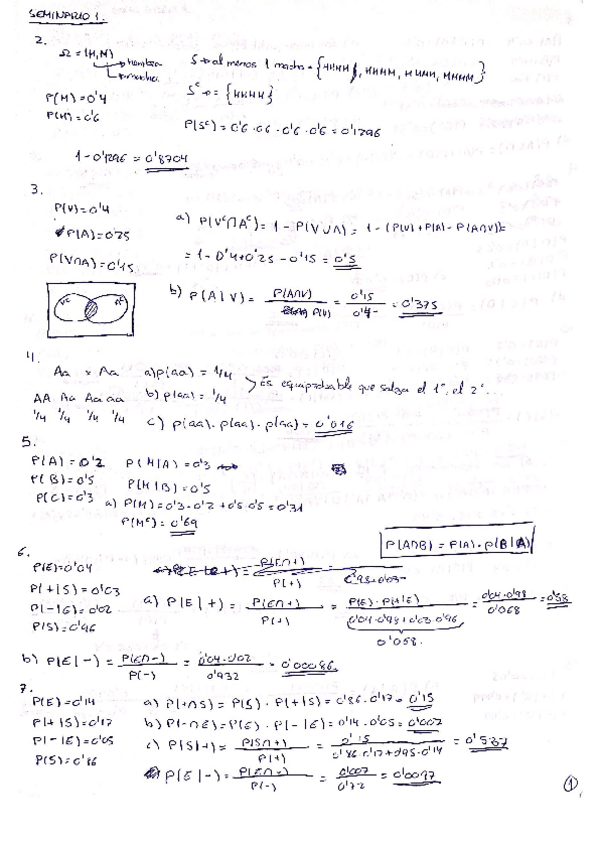 SEMINARIO 1.
2.
Ω = {H, M}
hembra
macho
S → al menos 1 macho = {HHHM, HHMH, HMHH, MHHH}
P(M) = 0'4
P(H) = 0'6
Sᶜ → = {HHHH}
P(Sᶜ) = 0'6 · 0'6 · 0'6 · 0'6 = 0'1296
1 - 0'1296 = 0'8704
3.
P(V) = 0'4
P(A) = 0'25
P(V∩A) = 0'15
a) P(Vᶜ∩Aᶜ) = 1 - P(V∪A) = 1 - (P(V) + P(A) - P(A∩V)) =
= 1 - 0'4 + 0'25 - 0'15 = 0'5
b) P(A|V) = P(A∩V) / P(V) = 0'15 / 0'4 = 0'375
4.
Aa x Aa
AA Aa Aa aa
1/4 1/4 1/4 1/4
a) p(aa) = 1/4
b) p(aa) = 1/4
Es equiprobable que salga el 1º, el 2º...
c) p(aa) · p(aa) · p(aa) = 0'016
5.
P(A) = 0'2 P(M|A) = 0'3
P(B) = 0'5 P(M|B) = 0'5
P(C) = 0'3 a) P(M) = 0'3 · 0'2 + 0'5 · 0'5 = 0'31
P(Mᶜ) = 0'69
P(A∩B) = P(A) · P(B|A)
6.
P(E) = 0'04
P(+|S) = 0'03
P(-|E) = 0'02
P(S) = 0'96
a) P(E|+) = P(E∩+) / P(+) = P(E) · P(+|E) / 0'04 · 0'98 + 0'03 · 0'96 = 0'04 · 0'98 / 0'068 = 0'58
0'068
b) P(E|-) = P(E∩-) / P(-) = 0'04 · 0'02 / 0'932 = 0'00086
7.
P(E) = 0'14
P(+|S) = 0'17
P(-|E) = 0'05
P(S) = 0'86
a) P(+∩S) = P(S) · P(+|S) = 0'86 · 0'17 = 0'15
b) P(-∩E) = P(E) · P(-|E) = 0'14 · 0'05 = 0'007
c) P(S|+) = P(S∩+) / P(+) = 0'15 / 0'86 · 0'17 + 0'95 · 0'14 = 0'537
P(E|-) = P(E∩-) / P(-) = 0'007 / 0'72 = 0'0097
1